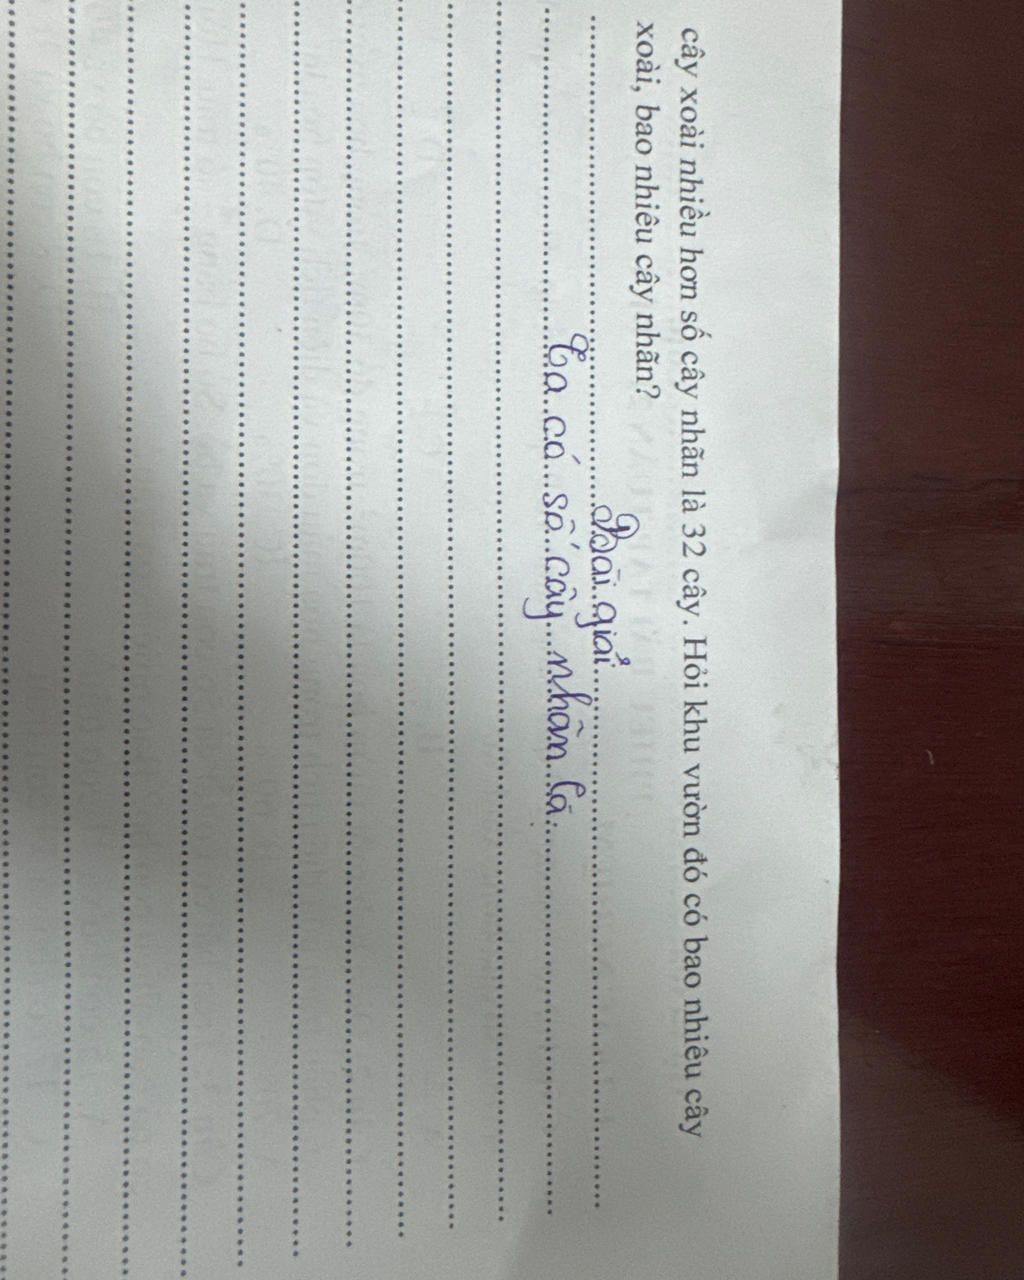 cây xoài nhiều hơn số cây nhãn là 32 cây. Hỏi khu vườn đó có bao nhiêu cây
xoài, bao nhiêu cây nhãn?
Bài giải
Ta có số cây nhãn là